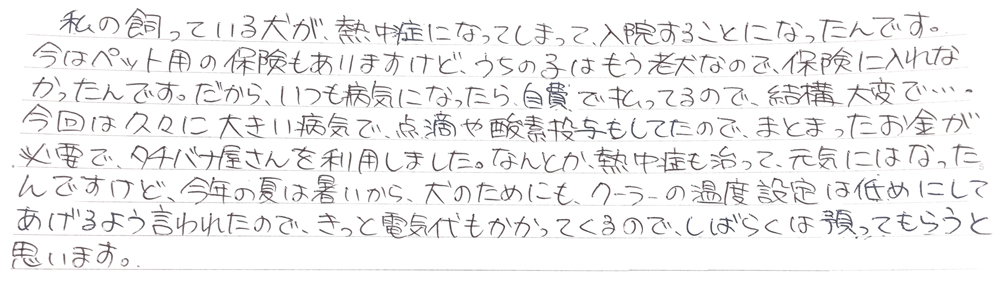 私の飼っている犬が、熱中症になってしまって、入院することになったんです。
今はペット用の保険もありますけど、うちの子はもう老犬なので、保険に入れな
かったんです。だから、いつも病気になったら、自費で払ってるので、結構大変で…。
今回は久々に大きい病気で、点滴や酸素投与もしてたので、まとまったお金が
必要で、タチバナ屋さんを利用しました。なんとか、熱中症も治って、元気にはなった
んですけど、今年の夏は暑いから、犬のためにも、クーラーの温度設定は低めにして
あげるよう言われたので、きっと電気代もかかってくるので、しばらくは預ってもらうと
思います。